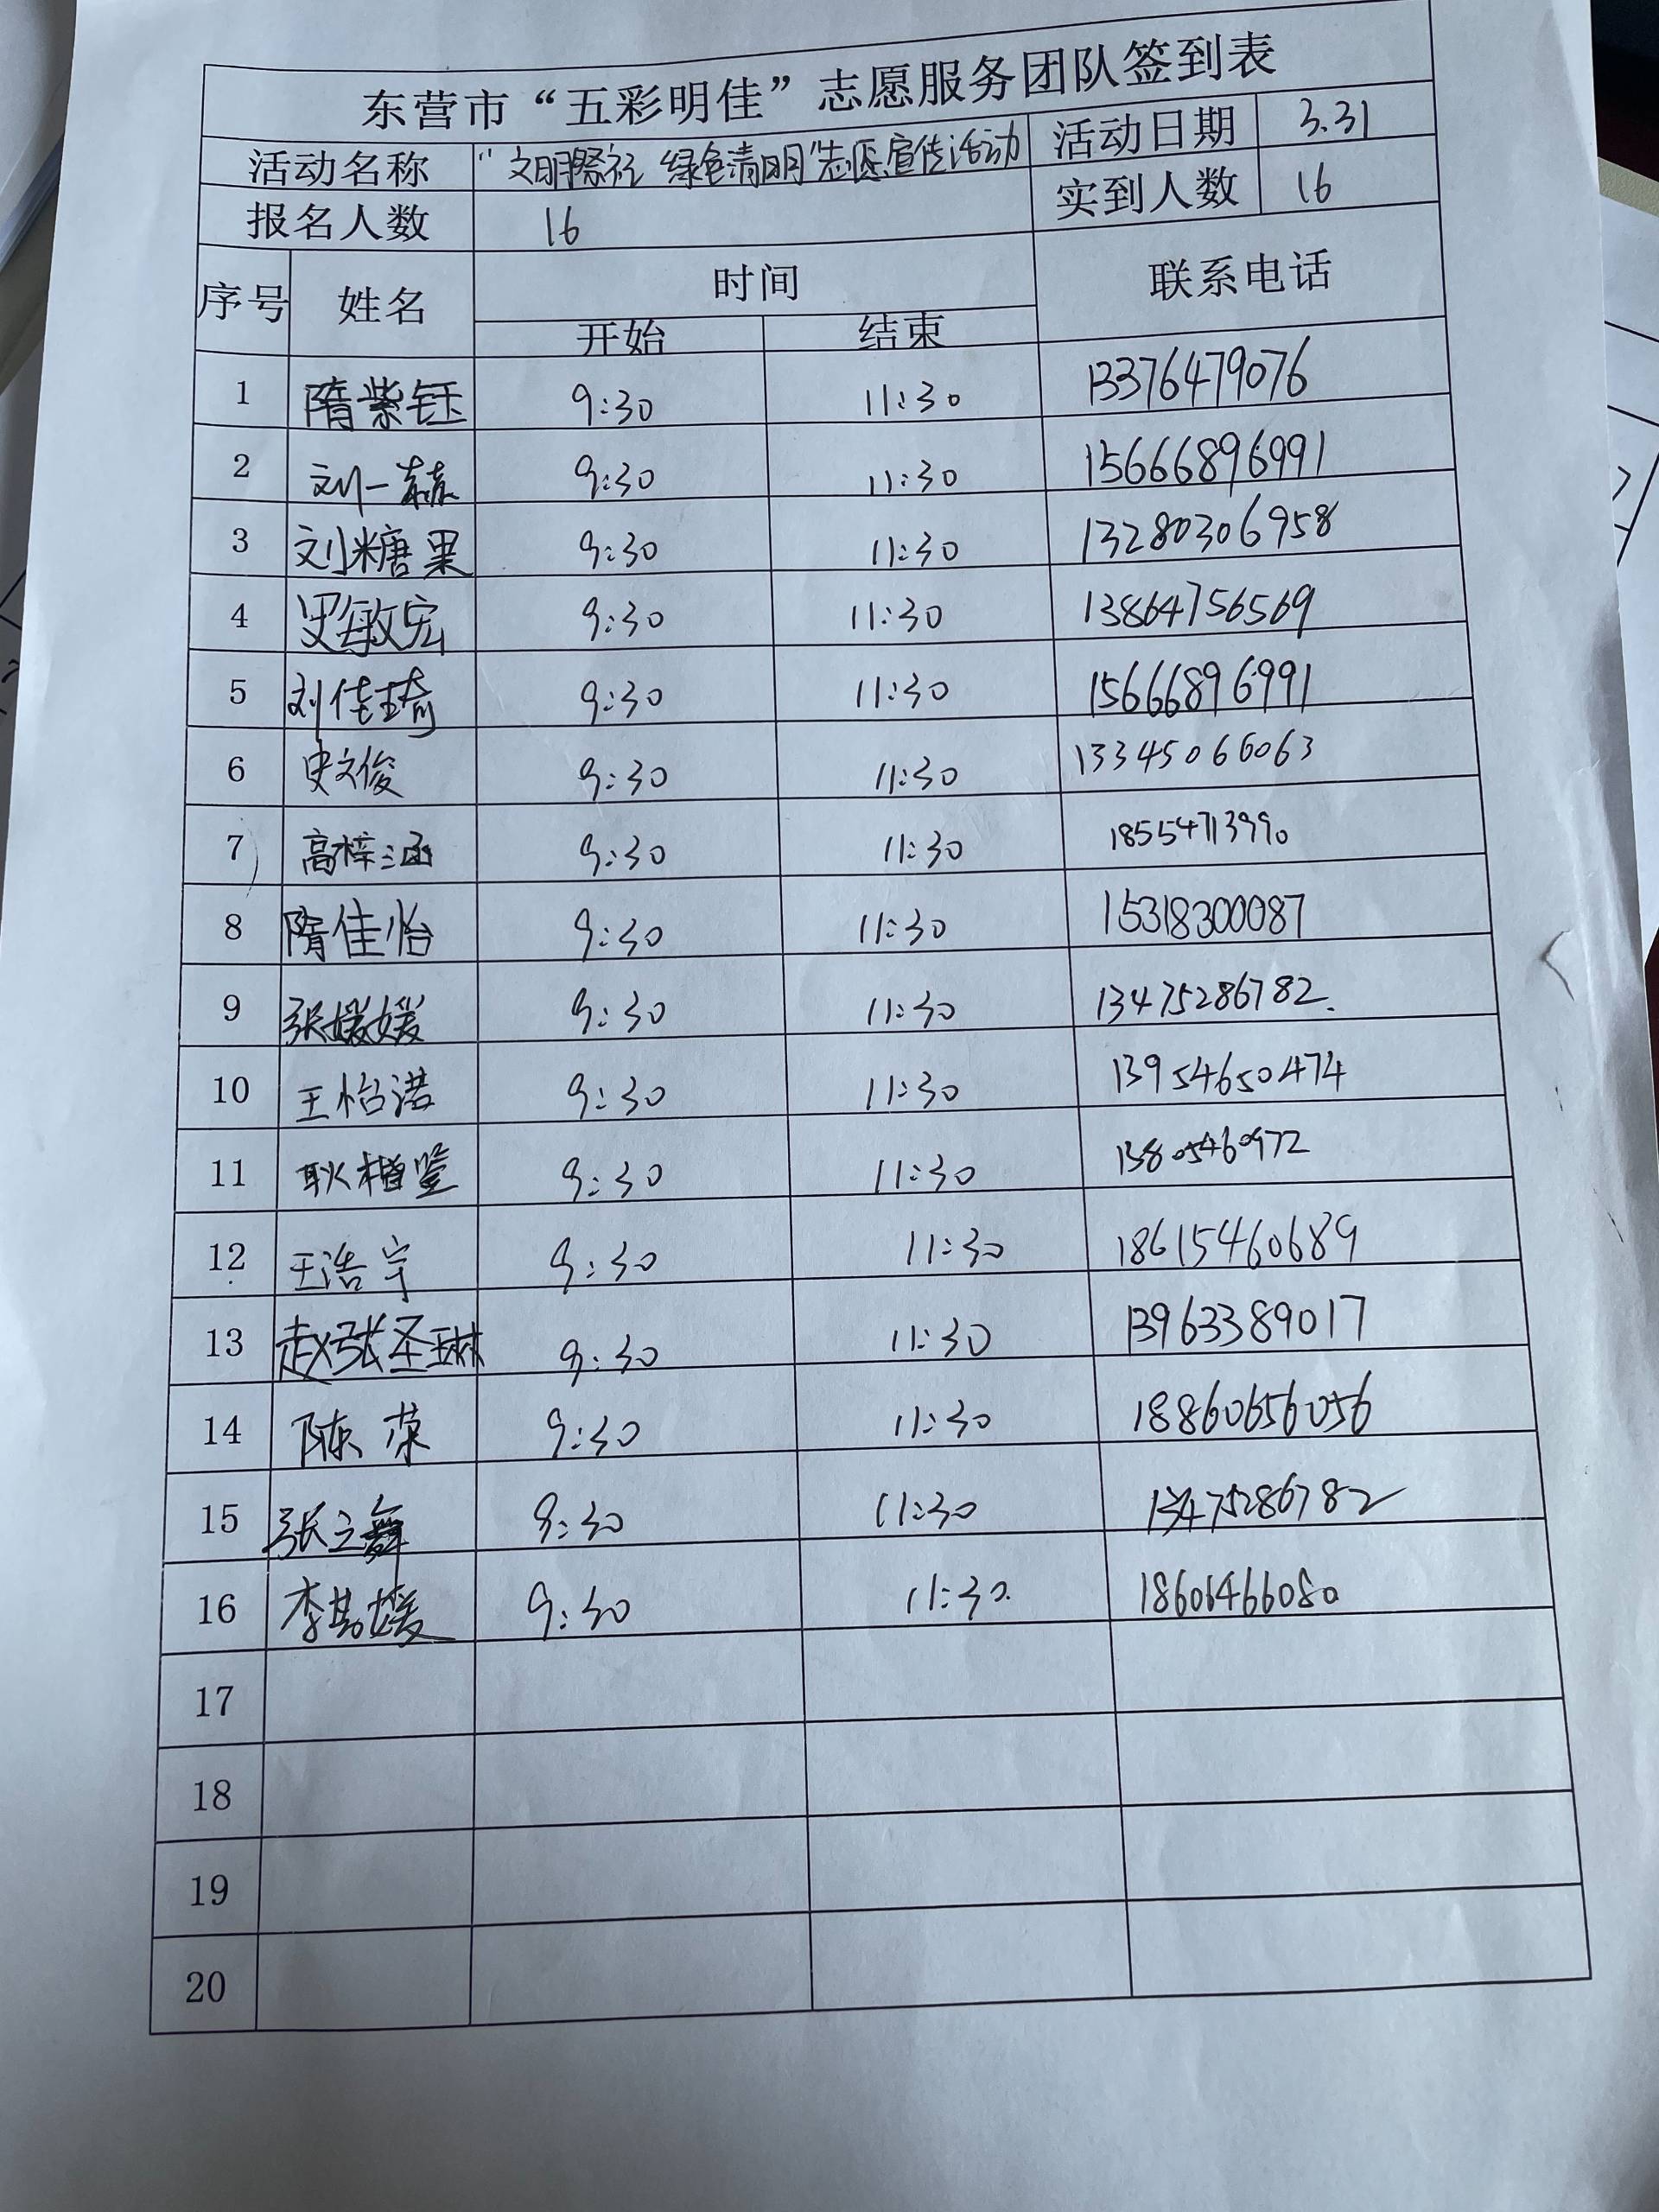 东营市“五彩明佳”志愿服务团队签到表
活动名称 “文明祭祀 绿色清明”志愿宣传活动 活动日期 3.31
报名人数 16 实到人数 16
序号 姓名 时间 联系电话
开始 结束
1 隋紫钰 9:30 11:30 13376479076
2 刘一赫 9:30 11:30 15666896991
3 刘糖果 9:30 11:30 13280306958
4 敏宏 9:30 11:30 13864756569
5 刘佳琦 9:30 11:30 15666896991
6 史文俊 9:30 11:30 13345066063
7 高梓涵 9:30 11:30 18554713990
8 隋佳怡 9:30 11:30 15318300087
9 张媛媛 9:30 11:30 13475286782.
10 王怡诺 9:30 11:30 13954650474
11 耿 9:30 11:30 13805460972
12 王浩宇 9:30 11:30 18615460689
13 赵张圣琳 9:30 11:30 13963389017
14 陈荣 9:30 11:30 18860656056
15 张立舞 9:30 11:30 13475286782
16 李媛 9:30 11:30. 18606466080
17
18
19
20